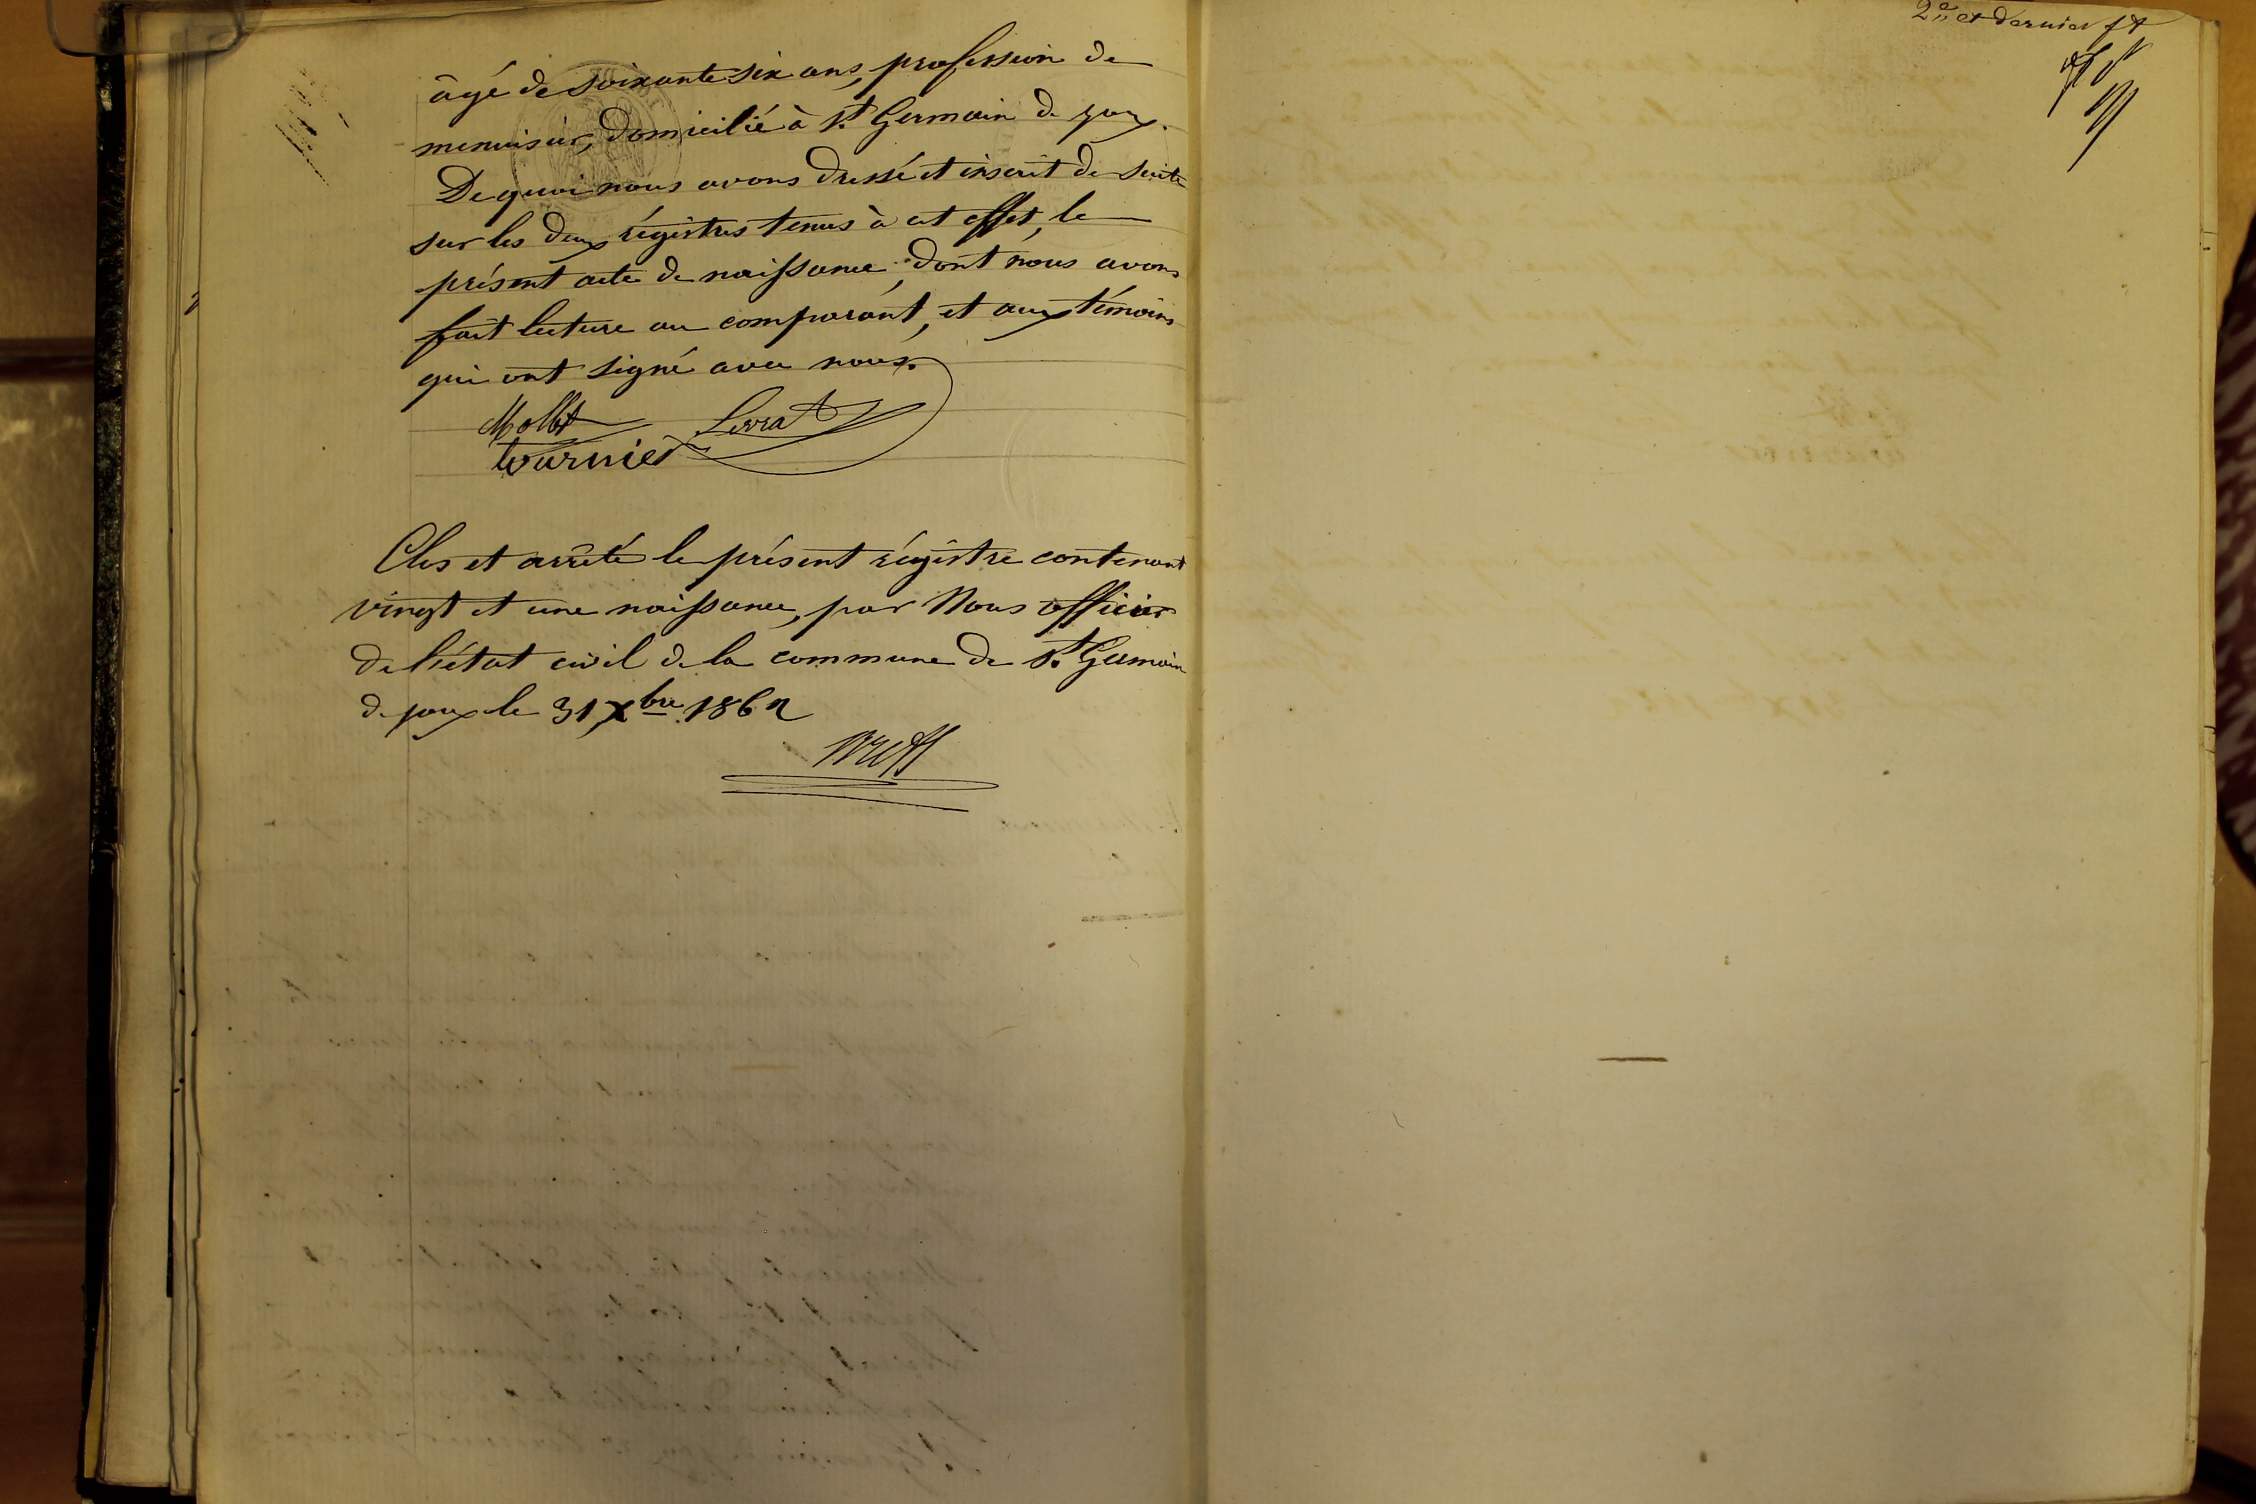 âgé de soixante six ans, profession de
menuisier, domicilié à St Germain de joux.
De quoi nous avons dressé et inscrit de suite
sur les deux régistres tenus à cet effet, le
présent acte de naissance, dont nous avons
fait lecture au comparant, et aux témoins
qui ont signé avec nous.
Mollet Serrat
tournier
Clos et arrêté le présent régistre contenant
vingt et une naissance, par Nous officier
de l'état civil de la commune de St Germain
de joux le 31 Xbre 1862
2e et dernier ft